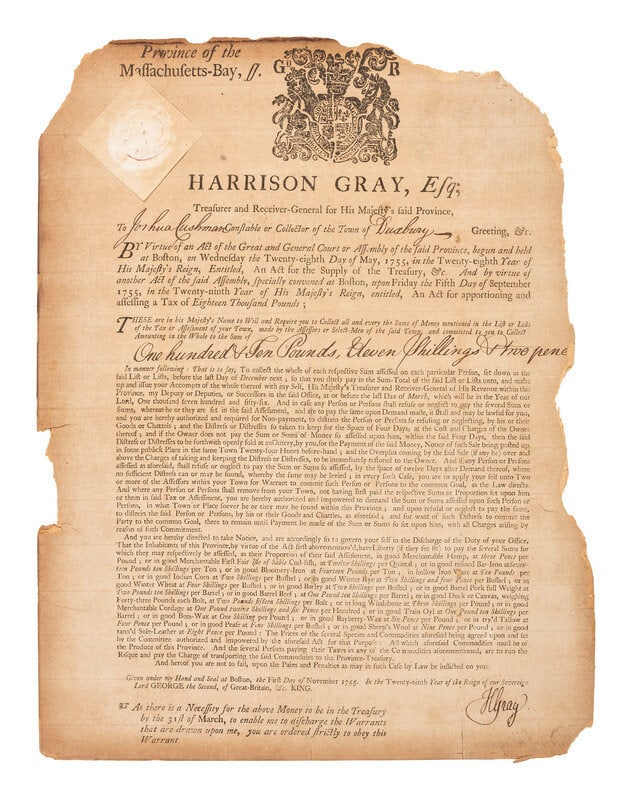 Province of the
Massachusetts-Bay, ſſ.
G II R
HARRISON GRAY, Eſq;
Treaſurer and Receiver-General for His Majeſty's ſaid Province,
To Joshua Cushman Conſtable or Collector of the Town of Duxbury Greeting, &c.
BY Virtue of an Act of the Great and General Court or Aſſembly of the ſaid Province, begun and held
at Boſton, on Wedneſday the Twenty-eighth Day of May, 1755, in the Twenty-eighth Year of
His Majeſty's Reign, Entitled, An Act for the Supply of the Treaſury, &c. And by virtue of
another Act of the ſaid Aſſembly, ſpecially convened at Boſton, upon Friday the Fifth Day of September
1755, in the Twenty-ninth Year of His Majeſty's Reign, entitled, An Act for apportioning and
aſſeſſing a Tax of Eighteen Thouſand Pounds;
THESE are in his Majeſty's Name to Will and Require you to Collect all and every the Sums of Money mentioned in the Liſt or Liſts
of the Tax or Aſſeſſment of your Town, made by the Aſſeſſors or Select-Men of the ſaid Town, and committed to you to Collect:
Amounting in the Whole to the Sum of
One hundred & Ten Pounds, Eleven Shillings & two pence
In manner following: That is to ſay, To collect the whole of each reſpective Sum aſſeſſed on each particular Perſon, ſet down in the
ſaid Liſt or Liſts, before the laſt Day of December next; ſo that you duely pay in the Sum-Total of the ſaid Liſt or Liſts unto, and make
up and iſſue your Accompts of the whole thereof with my Self, His Majeſty's Treaſurer and Receiver-General of His Revenue within this
Province, my Deputy or Deputies, or Succeſſors in the ſaid Office, at or before the laſt Day of March, which will be in the Year of our
Lord, One thouſand ſeven hundred and fifty-ſix. And in caſe any Perſon or Perſons ſhall refuſe or neglect to pay the ſeveral Sum or
Sums, whereat he or they are ſet in the ſaid Aſſeſſment, and are to pay the ſame upon Demand made, it ſhall and may be lawful for you,
and you are hereby authorized and required for Non-payment, to diſtrein the Perſon or Perſons ſo refuſing or neglecting, by his or their
Goods or Chattels; and the Diſtreſs or Diſtreſſes ſo taken to keep for the Space of Four Days, at the Coſt and Charges of the Owner
thereof; and if the Owner does not pay the Sum or Sums of Money ſo aſſeſſed upon him, within the ſaid Four Days, then the ſaid
Diſtreſs or Diſtreſſes to be forthwith openly ſold at an Outcry, by you, for the Payment of the ſaid Money, Notice of ſuch Sale being poſted up,
in ſome publick Place in the ſame Town Twenty-four Hours before-hand; and the Overplus coming by the ſaid Sale (if any be) over and
above the Charges of taking and keeping the Diſtreſs or Diſtreſſes, to be immediately reſtored to the Owner. And if any Perſon or Perſons
aſſeſſed as aforeſaid, ſhall refuſe or neglect to pay the Sum or Sums ſo aſſeſſed, by the ſpace of twelve Days after Demand thereof, where
no ſufficient Diſtreſs can or may be found, whereby the ſame may be levied; in every ſuch Caſe, you are to apply your ſelf unto Two
or more of the Aſſeſſors within your Town for Warrant to commit ſuch Perſon or Perſons to the common Goal, as the Law directs.
And where any Perſon or Perſons ſhall remove from your Town, not having firſt paid the reſpective Sums or Proportion ſet upon him
or them in ſaid Tax or Aſſeſſment, you are hereby authorized and impowered to demand the Sum or Sums aſſeſſed upon ſuch Perſon or
Perſons, in what Town or Place ſoever he or they may be found within this Province; and upon refuſal or neglect to pay the ſame,
to diſtrein the ſaid Perſon or Perſons, by his or their Goods and Chattles, as aforeſaid; and for want of ſuch Diſtreſs to commit the
Party to the common Goal, there to remain until Payment be made of the Sum or Sums ſo ſet upon him, with all Charges ariſing by
reaſon of ſuch Commitment.
And you are hereby directed to take Notice, and are accordingly ſo to govern your ſelf in the Diſcharge of the Duty of your Office,
That the Inhabitants of this Province, by virtue of the Act firſt aforemention'd, have Liberty (if they ſee fit) to pay the ſeveral Sums for
which they may reſpectively be aſſeſſed, as their Proportion of their ſaid Aſſeſſment, in good Merchantable Hemp, at three Pence per
Pound; or in good Merchantable Fiſh Fair Iſle of Sable Cod-fiſh, at Twelve Shillings per Quintal; or in good refined Bar-Iron at
ten Pounds ten Shillings per Ton; or in good Bloomery-Iron at Fourteen Pounds per Ton; in hollow Iron Ware at Ten Pounds per
Ton; or in good Indian Corn at Two Shillings per Buſhel; or in good Winter Rye at Two Shillings and four Pence per Buſhel; or in
good Winter Wheat at Four Shillings per Buſhel; or in good Barley at Two Shillings per Buſhel; or in good Barrel Pork full Weight at
Two Pounds ten Shillings per Barrel; or in good Barrel Beef; at One Pound ten Shillings per Barrel; or in good Duck or Canvas, weighing
Forty-three Pounds each Bolt, at Two Pounds fifteen Shillings per Bolt; or in long Whalebone at Three Shillings per Pound; or in good
Merchantable Cordage at One Pound twelve Shillings and ſix Pence per Hundred; or in good Train Oyl at One Pound ten Shillings per
Barrel; or in good Bees-Wax at One Shilling per Pound; or in good Bayberry-Wax at Six Pence per Pound; or in try'd Tallow at
Four Pence per Pound; or in good Peaſe at Four Shillings per Buſhel; or in good Sheep's Wool at Nine Pence per Pound; or in good
tann'd Sole-Leather at Eight Pence per Pound: The Prices of the ſeveral Species and Commodities aforeſaid being agreed upon and ſet
by the Committee authorized and impowered by the aforeſaid Act for that Purpoſe: All which aforeſaid Commodities muſt be of
the Produce of this Province. And the ſeveral Perſons paying their Taxes in any of the Commodities aforementioned, are to run the
Riſque and pay the Charge of tranſporting the ſaid Commodities to the Province-Treaſury.
And hereof you are not to fail, upon the Pains and Penalties as may in ſuch Caſe by Law be inflicted on you.
Given under my Hand and Seal at Boſton, the Firſt Day of November 1755. In the Twenty-ninth Year of the Reign of our Sovereign
Lord GEORGE the Second, of Great-Britain, &c. KING.
HGray
As there is a Neceſſity for the above Money to be in the Treaſury
by the 31ſt of March, to enable me to diſcharge the Warrants
that are drawn upon me, you are ordered ſtrictly to obey this
Warrant